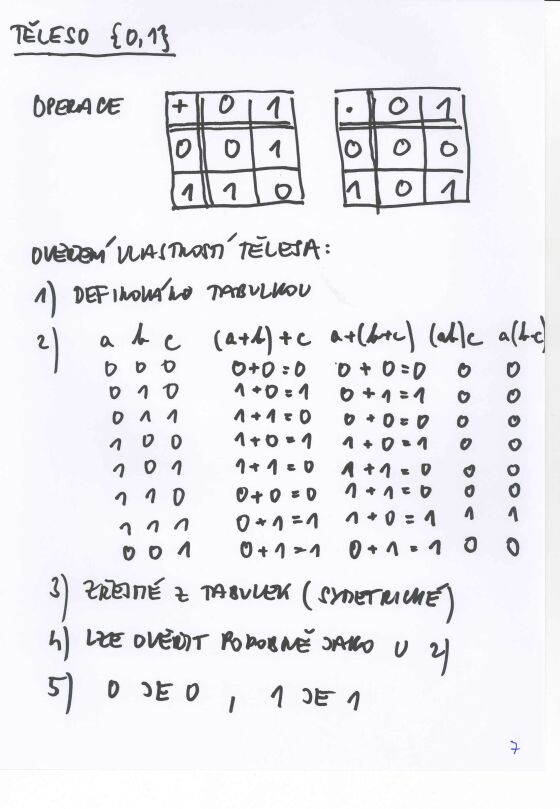 TĚLESO {0,1}
OPERACE
+ 0 1
0 0 1
1 1 0
· 0 1
0 0 0
1 0 1
OVĚŘENÍ VLASTNOSTÍ TĚLESA:
1) DEFINOVÁNO TABULKOU
2) a b c (a+b)+c a+(b+c) (ab)c a(b·c)
0 0 0 0+0=0 0+0=0 0 0
0 1 0 1+0=1 0+1=1 0 0
0 1 1 1+1=0 0+0=0 0 0
1 0 0 1+0=1 1+0=1 0 0
1 0 1 1+1=0 1+1=0 0 0
1 1 0 0+0=0 1+1=0 0 0
1 1 1 0+1=1 1+0=1 1 1
0 0 1 0+1=1 0+1=1 0 0
3) ZŘEJMÉ Z TABULEK (SYMETRICKÉ)
4) LZE OVĚŘIT PODOBNĚ JAKO U 2)
5) 0 JE 0, 1 JE 1
7